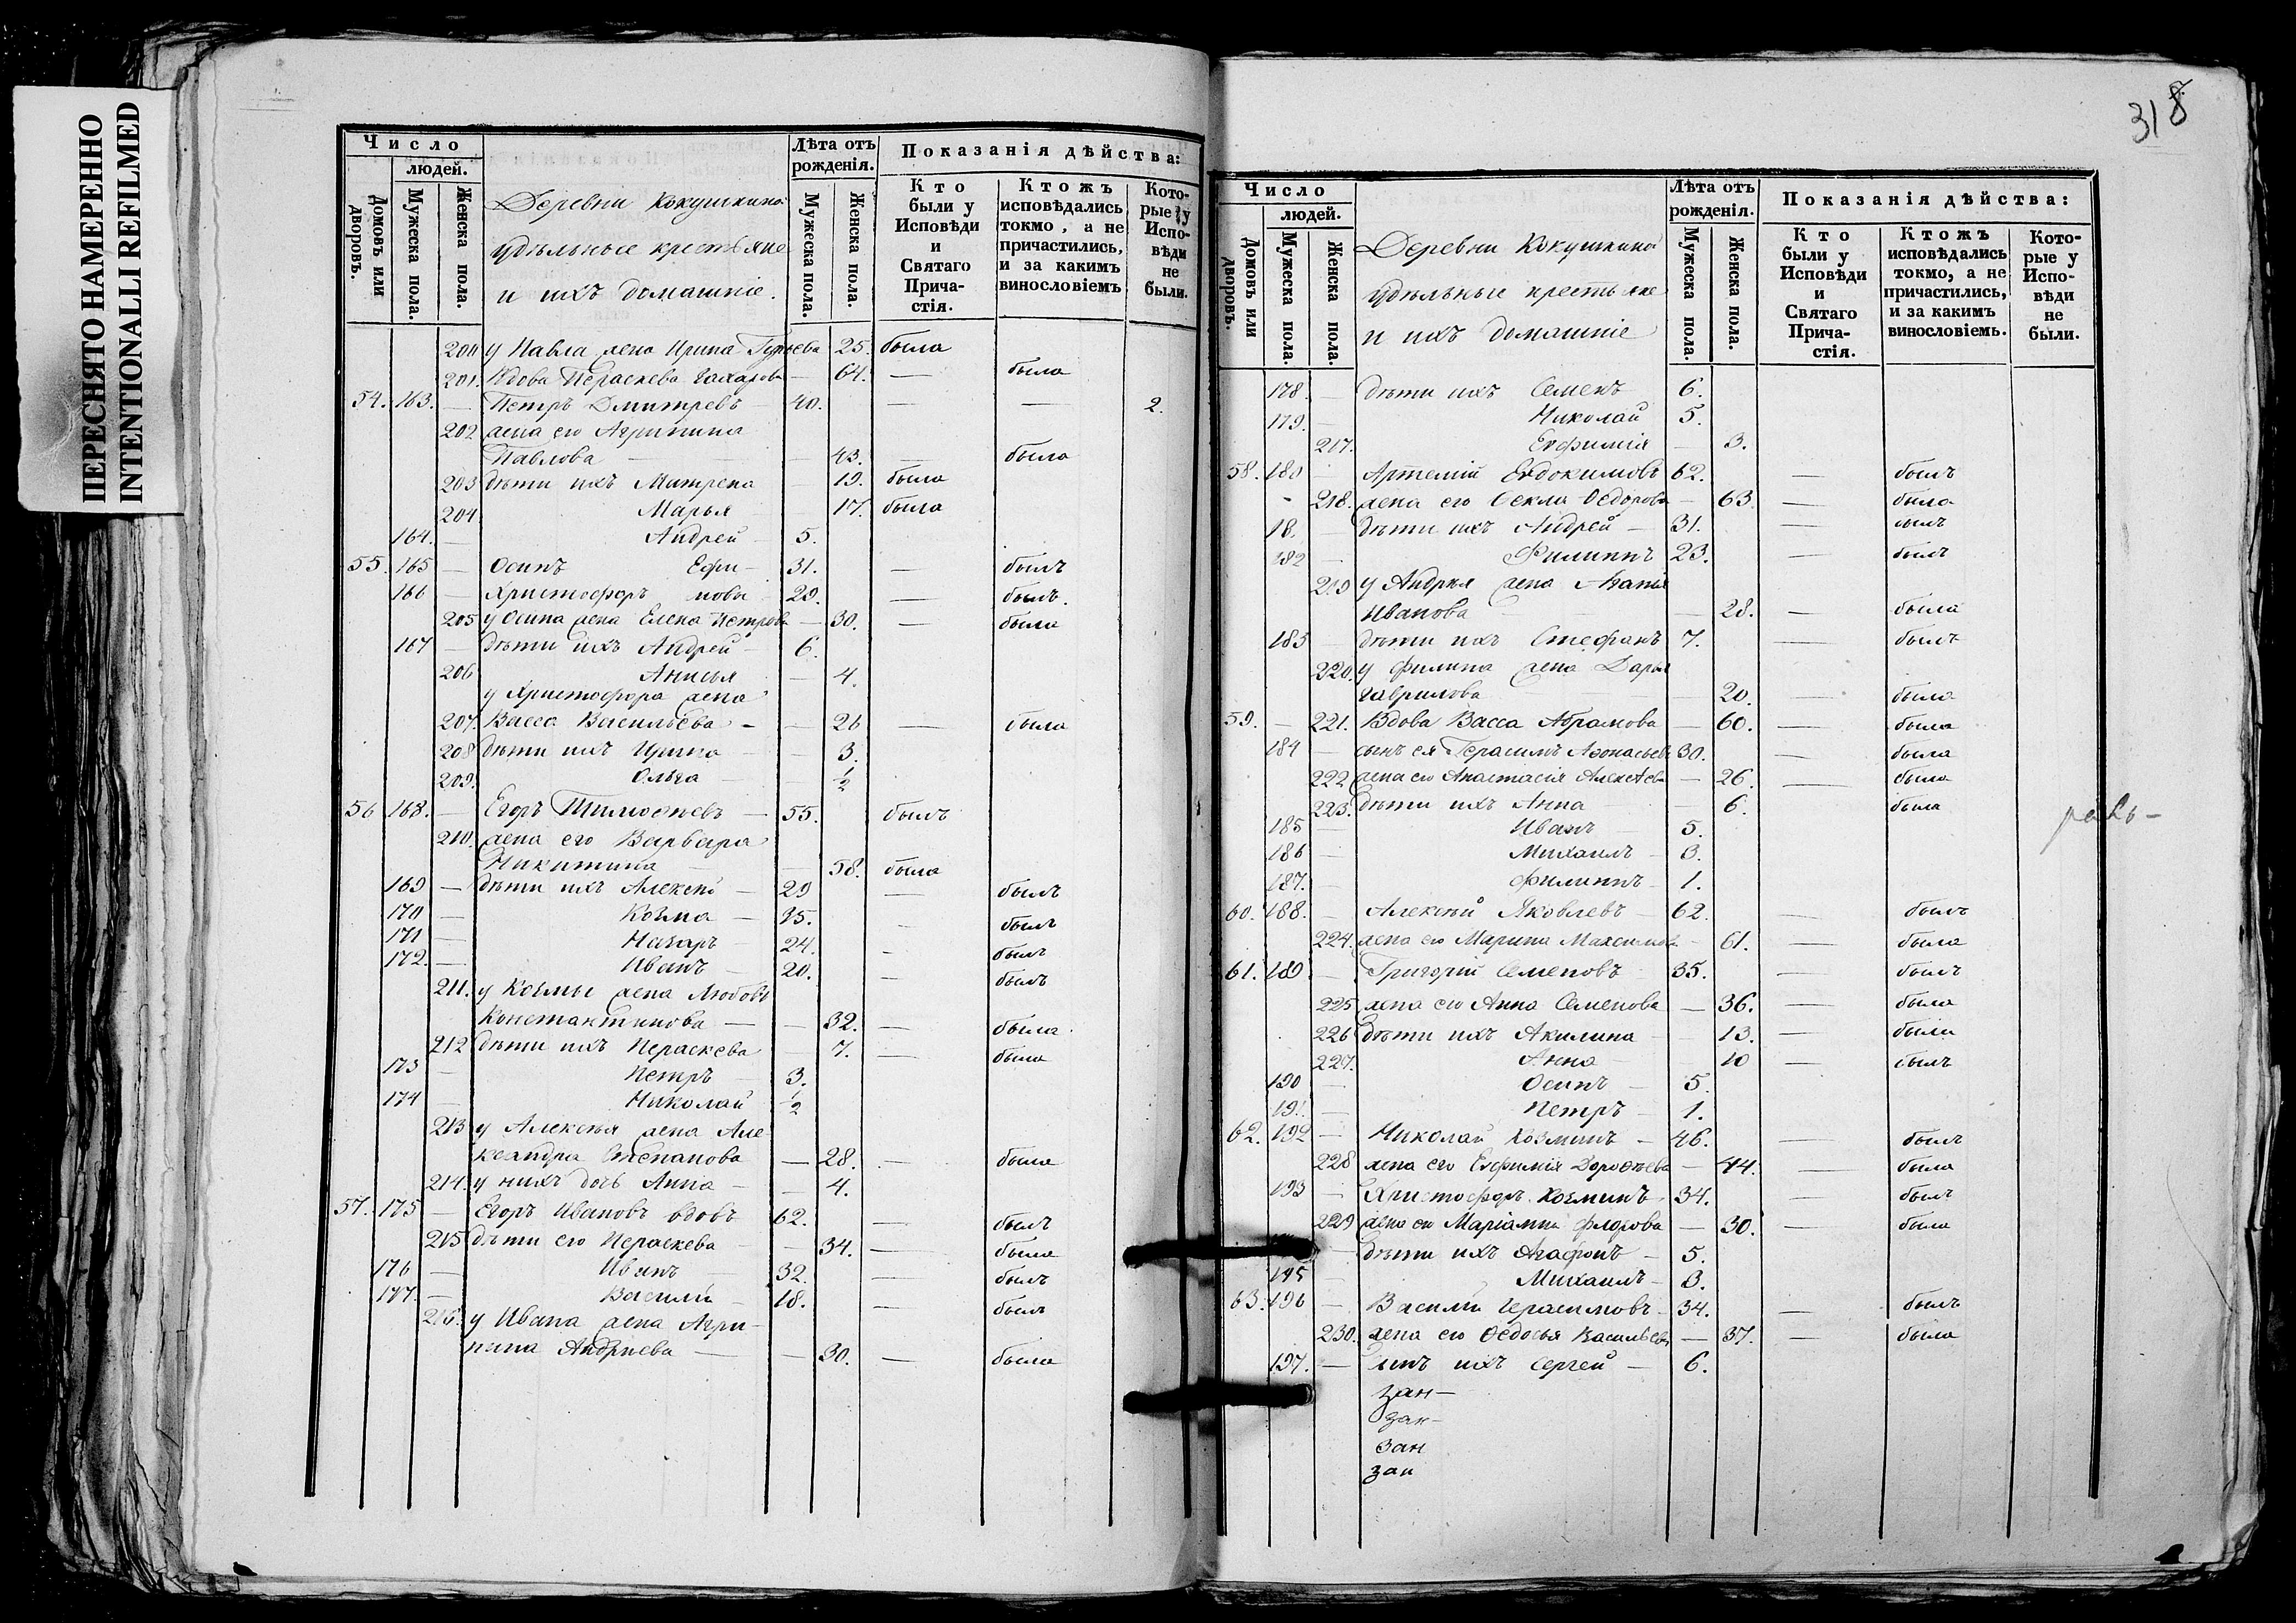 ПЕРЕСНЯТО НАМЕРЕННО
INTENTIONALLI REFILMED
Число
людей.
Домовъ или дворовъ.
Мужеска пола.
Женска пола.
Деревни Кокушкиной
удѣльные крестьяне
и ихъ домашніе.
Лѣта отъ рожденія.
Мужеска пола.
Женска пола.
Показанія дѣйства:
Кто были у Исповѣди и Святаго Прича-стія.
Ктожъ исповѣдались токмо, а не причастились, и за какимъ винословіемъ
Кото-рые у Испо-вѣди не были.
200 у Павла жена Ирина Гурьева — 25. была
201. Вдова Пераскева Захарова — 64. — была
54. 163. — Петръ Дмитревъ — 40. — — 2.
202 жена его Агрипина
Павлова — — 43. — была
203 дѣти ихъ Матрена — 19. была
204. Марья — 17. была
164. — Андрей — 5.
55. 165 — Осипъ Ефи- 31. — былъ
166 — Христофоръ мовы 29. — былъ.
205 у Осипа жена Елена Петрова — 30. — была
167 — дѣти ихъ Андрей — 6.
206 Анисья — 4.
у Христофора жена
207. Васса Васильева — — 26 — была
208 дѣти ихъ Ирина — — 3.
209. Ольга — — 1/2
56 168. — Егоръ Тимофѣевъ — 55. былъ
210. жена его Варвара
Никитина — — 58. была
169 — дѣти ихъ Алексѣй — 29 — былъ
170 — Козма — 25. — былъ
171 — Назаръ — 24. — былъ
172. — Иванъ — 20. — былъ
211. у Козмы жена Любовь
Константинова — — 32. — была.
212 дѣти ихъ Пераскева — 7. — была
173 — Петръ — 3.
174 — Николай 1/2
213 у Алексѣя жена Але-
ксандра Степанова — 28. — была
214. у нихъ дочь Анна — — 4.
57. 175 — Егоръ Ивановъ вдовъ 62. — былъ
215 дѣти его Пераскева — — 34. — была
176 — Иванъ — 32. — былъ
177. — Василій — 18. — былъ
216. у Ивана жена Агри-
пина Андрѣева — — 30. — была
318
Число
людей.
Домовъ или дворовъ.
Мужеска пола.
Женска пола.
Деревни Кокушкиной
удѣльные крестьяне
и ихъ домашніе
Лѣта отъ рожденія.
Мужеска пола.
Женска пола.
Показанія дѣйства:
Кто были у Исповѣди и Святаго Прича-стія.
Ктожъ исповѣдались токмо, а не причастились, и за какимъ винословіемъ.
Кото-рые у Испо-вѣди не были.
178. — дѣти ихъ Семенъ 6.
179. — Николай 5.
217. Евфимія — 3.
58. 180 — Артемій Евдокимовъ 62. — былъ
218. жена его Ѳекла Ѳедорова — 63. — была
18. — дѣти ихъ Андрей — 31. — былъ
182 — Филиппъ 23. — былъ
219 у Андрея жена
Иванова — 28. — была
183 — дѣти ихъ Стефанъ 7. — былъ
220. у Филипа жена Дарья
Гаврилова — 20. — была
59. — 221. Вдова Васса Абрамова — 60. — была
184 — сынъ ея Герасимъ Аѳонасьевъ 30. — была
222 жена его Анастасія Алексѣева — 26. — была
223. дѣти ихъ Анна — 6. была
185 — Иванъ — 5.
186 — Михаилъ — 3.
187. — Филиппъ — 1.
60. 188. — Алексѣй Яковлевъ — 62. — былъ
224. жена его Марина Максимова — 61. — была
61. 189 — Григорій Семеновъ 35. — былъ
225 жена его Анна Семенова — 36. — была
226 дѣти ихъ Акилина — 13. — была
227. Анна — 10 — былъ
190 — Осипъ — 5.
191. — Петръ — 1.
62. 192 — Николай Козминъ — 46. — былъ
228 жена его Евфимія Дороѳѣева — 44. — была
193 — Христофоръ Козминъ 34. — былъ
229 жена его Маріамна Флорова — 30. — была
— дѣти ихъ Агафонъ — 5.
195 — Михаилъ — 3.
63. 196 — Василій Герасимовъ 34. — былъ
230. жена его Ѳедосья Васильева — 37. — была
197. — сынъ ихъ Сергей — 6.
зан—
зан—
зан
зан